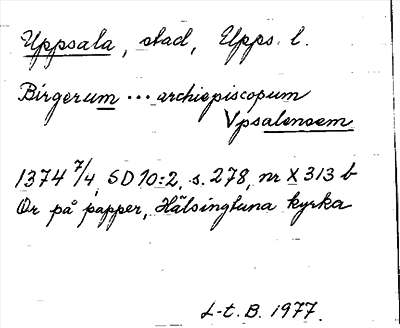 Uppsala, stad, Upps. l.
Birgerum ... archiepiscopum
Vpsalensem
1374 7/4, SD 10:2, s. 278, nr X 313 b
Or på papper, Hälsingtuna kyrka
L-t. B. 1977.